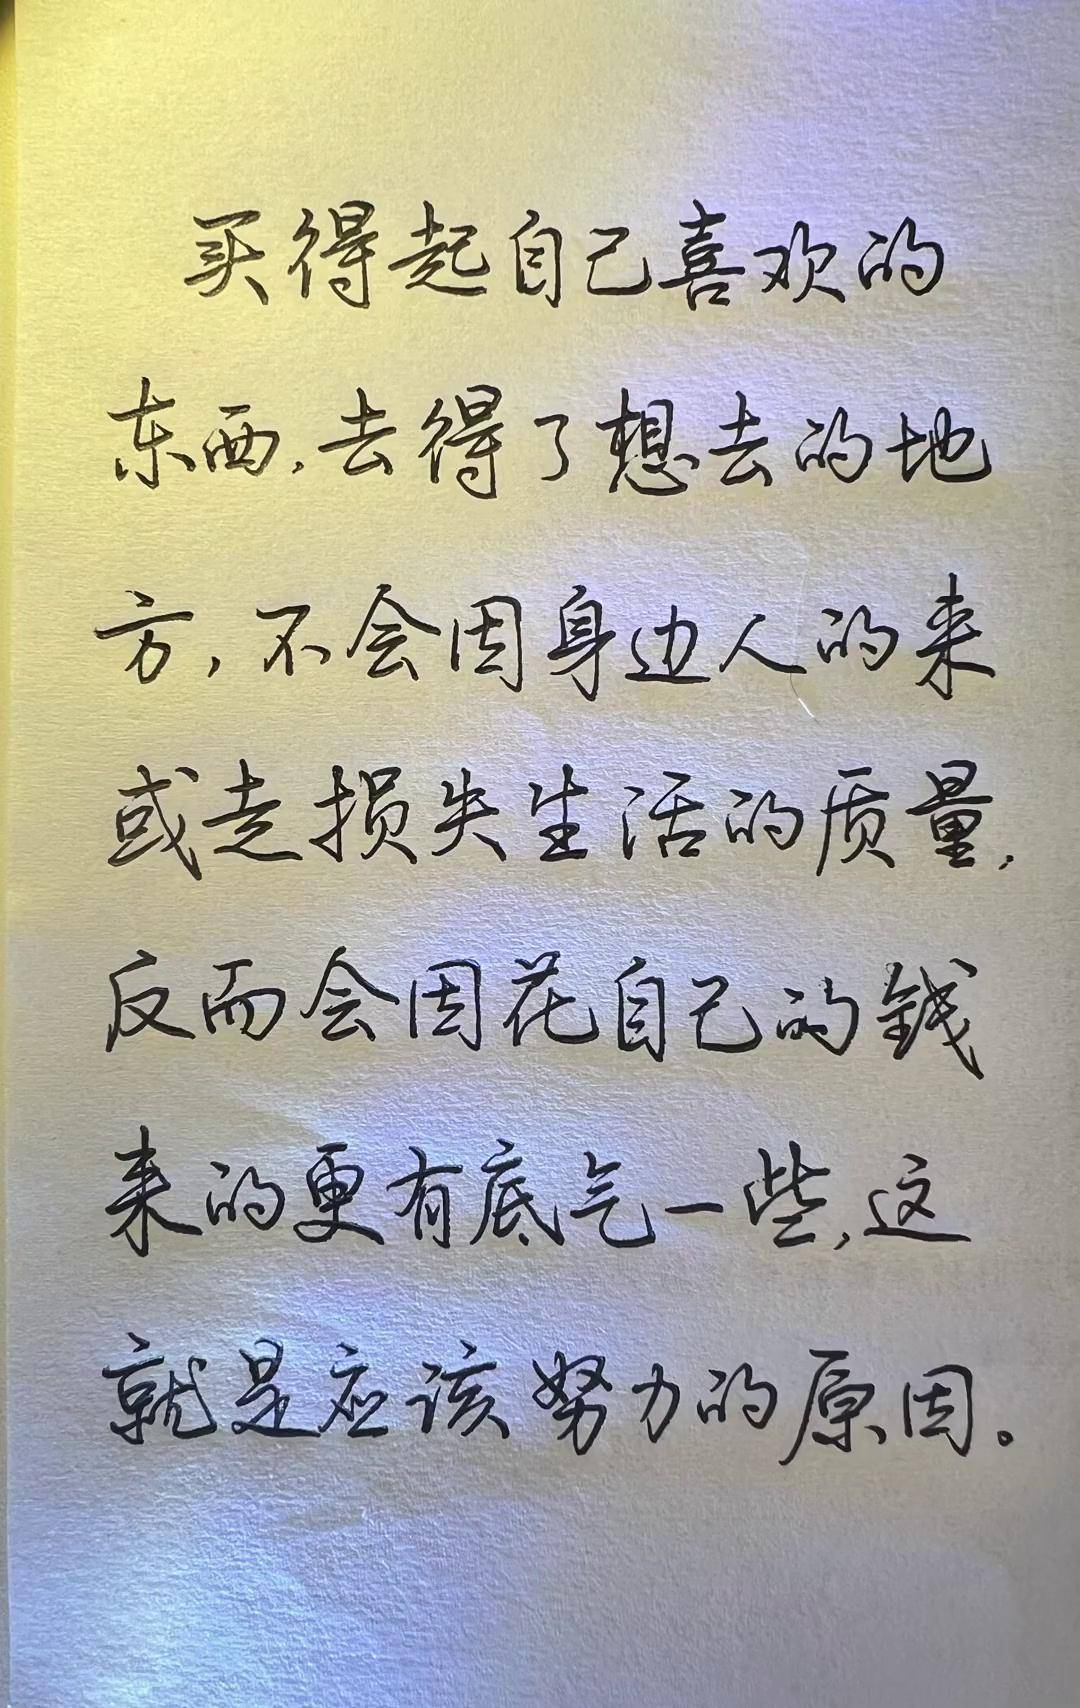 买得起自己喜欢的
东西,去得了想去的地
方,不会因身边人的来
或走损失生活的质量,
反而会因花自己的钱
来的更有底气一些,这
就是应该努力的原因。